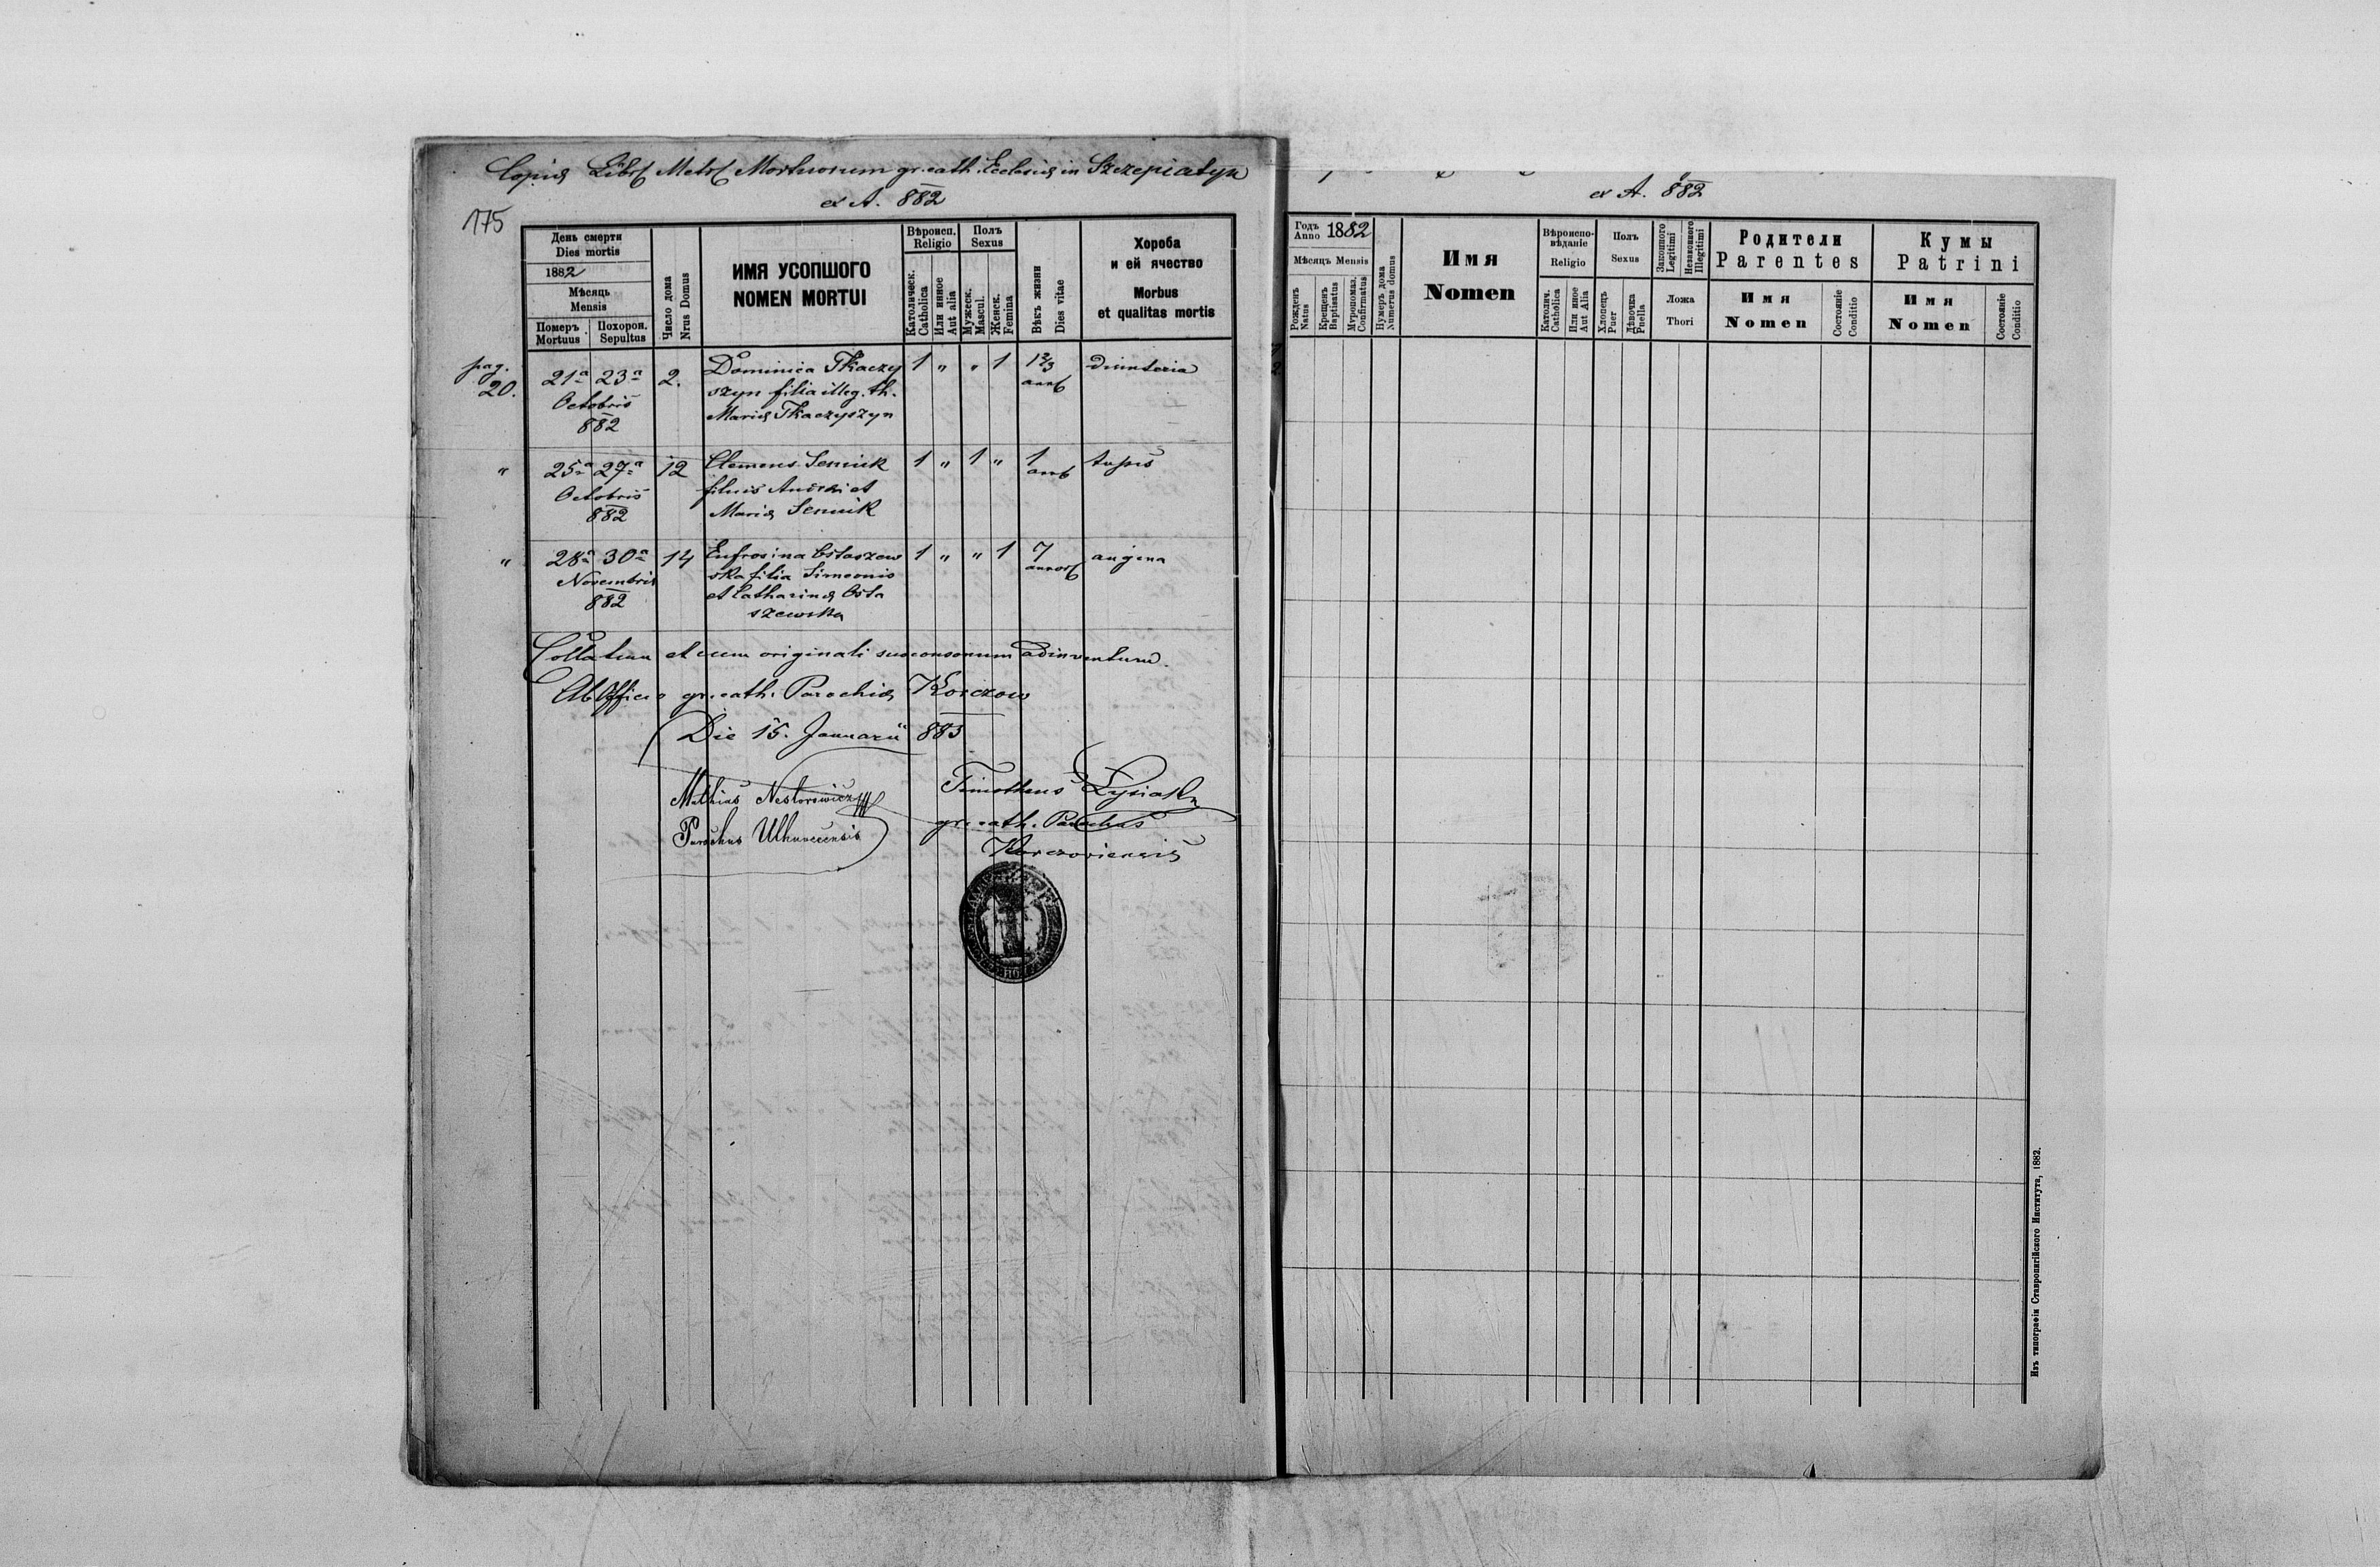 Copia Libri Metri Mortuorum gr. cath. Ecclesiæ in Szczepiatyn
ex A. 882
175
День смерти
Dies mortis
1882
Мѣсяць
Mensis
Померъ
Mortuus
Похорон.
Sepultus
Число дома
Nrus Domus
ИМЯ УСОПШОГО
NOMEN MORTUI
Вѣроисп.
Religio
Католическ.
Catholica
Или инное
Aut Alia
Полъ
Sexus
Мужеск.
Mascul.
Женск.
Femina
Вѣкъ жизни
Dies vitae
Хороба
и ей ячество
Morbus
et qualitas mortis
pag. 21ª 23ª 2. Dominica Tkaczy 1 " " 1 1 2/3
20. Octobris szyn filia illeg. th.
882 Mariæ Tkaczyszyn
" 25ª 27ª 12 Clemens Seniuk 1 " 1 " 1 tussis
Octobris filius Andrei et
882 Mariæ Seniuk
" 28ª 30ª 14 Eufrosina Ostaszew 1 " " 1 7 angina
Novembris ska filia Simeonis annor
882 et Catharinæ Osta
szewska
Collatum et cum originali adinventum.
Ab Officio gr. cath. Parochiæ Korczow
Die 15. Januarii 883
Mathias Nestorowicz
Parochus Uhnoviensis
Timotheus Lysiak
gr. cath. Parochus
Korczoviensis
ex A. 882
Годъ
Anno 1882
Мѣсяцъ Mensis
Рожденъ
Natus
Крещенъ
Baptisatus
Мѵропомаз.
Confirmatus
Нумеръ дома
Numerus domus
Имя
Nomen
Вѣроиспо-
вѣданіе
Religio
Католич.
Catholica
Или иное
Aut Alia
Полъ
Sexus
Хлопецъ
Puer
Дѣвочка
Puella
Законного
Legitimi
Незаконного
Illegitimi
Ложа
Thori
Родители
Parentes
Имя
Nomen
Состояніе
Conditio
Кумы
Patrini
Имя
Nomen
Состояніе
Conditio
Изъ типографіи Ставропигійского Института, 1882.